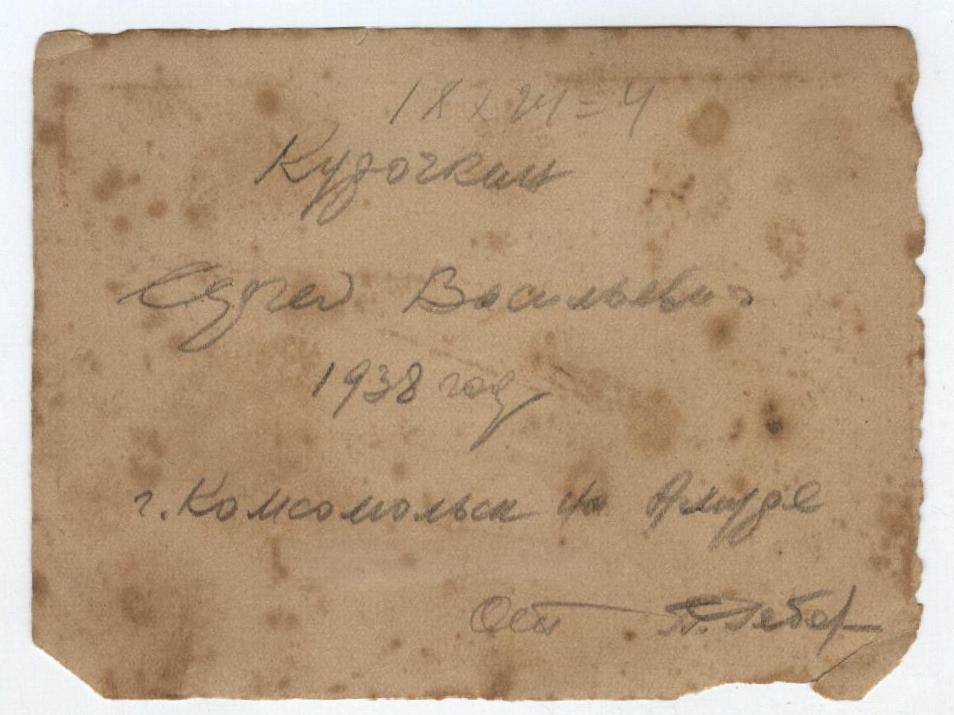 18 x 24 = 4
Курочкин
Сергей Васильевич
1938 год
г. Комсомольск на Амуре